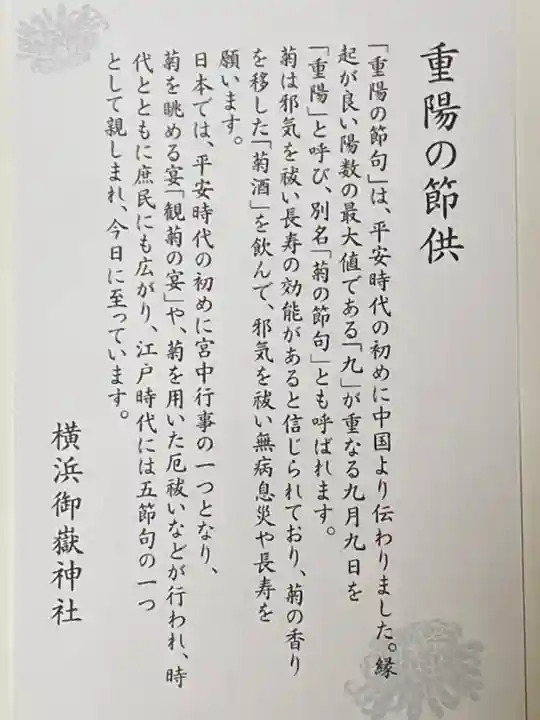 重陽の節供
「重陽の節句」は、平安時代の初めに中国より伝わりました。縁
起が良い陽数の最大値である「九」が重なる九月九日を
「重陽」と呼び、別名「菊の節句」とも呼ばれます。
菊は邪気を祓い長寿の効能があると信じられており、菊の香り
を移した「菊酒」を飲んで、邪気を祓い無病息災や長寿を
願います。
日本では、平安時代の初めに宮中行事の一つとなり、
菊を眺める宴「観菊の宴」や、菊を用いた厄祓いなどが行われ、時
代とともに庶民にも広がり、江戸時代には五節句の一つ
として親しまれ、今日に至っています。
横浜御嶽神社